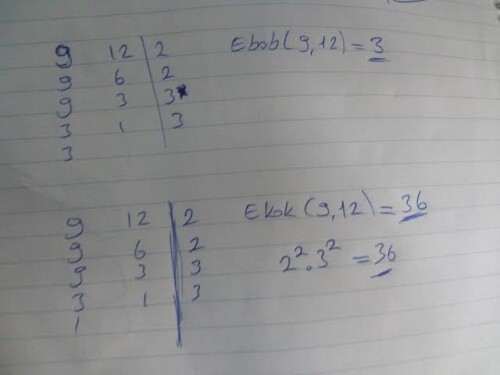 9 12 | 2 Ebob(9,12) = 3
9 6 | 2
9 3 | 3*
3 1 | 3
3
9 12 | 2 Ekok(9,12) = 36
9 6 | 2 2².3² = 36
9 3 | 3
3 1 | 3
1